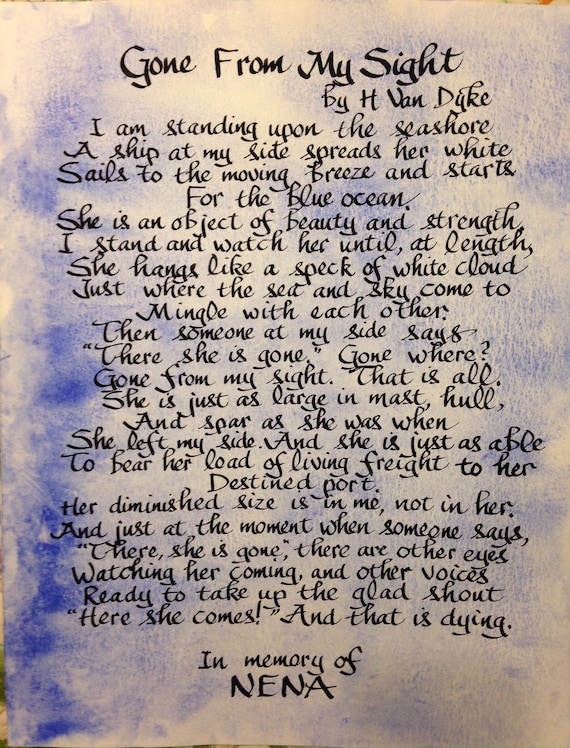 Gone From My Sight
By H Van Dyke
I am standing upon the seashore
A ship at my side spreads her white
Sails to the moving breeze and starts
For the blue ocean.
She is an object of beauty and strength,
I stand and watch her until, at length,
She hangs like a speck of white cloud
Just where the sea and sky come to
Mingle with each other.
Then someone at my side says
"There she is gone." Gone where?
Gone from my sight. That is all.
She is just as large in mast, hull,
And spar as she was when
She left my side. And she is just as able
To bear her load of living freight to her
Destined port.
Her diminished size is in me, not in her.
And just at the moment when someone says,
"There, she is gone", there are other eyes
Watching her coming, and other voices
Ready to take up the glad shout
"Here she comes!" And that is dying.
In memory of
NENA